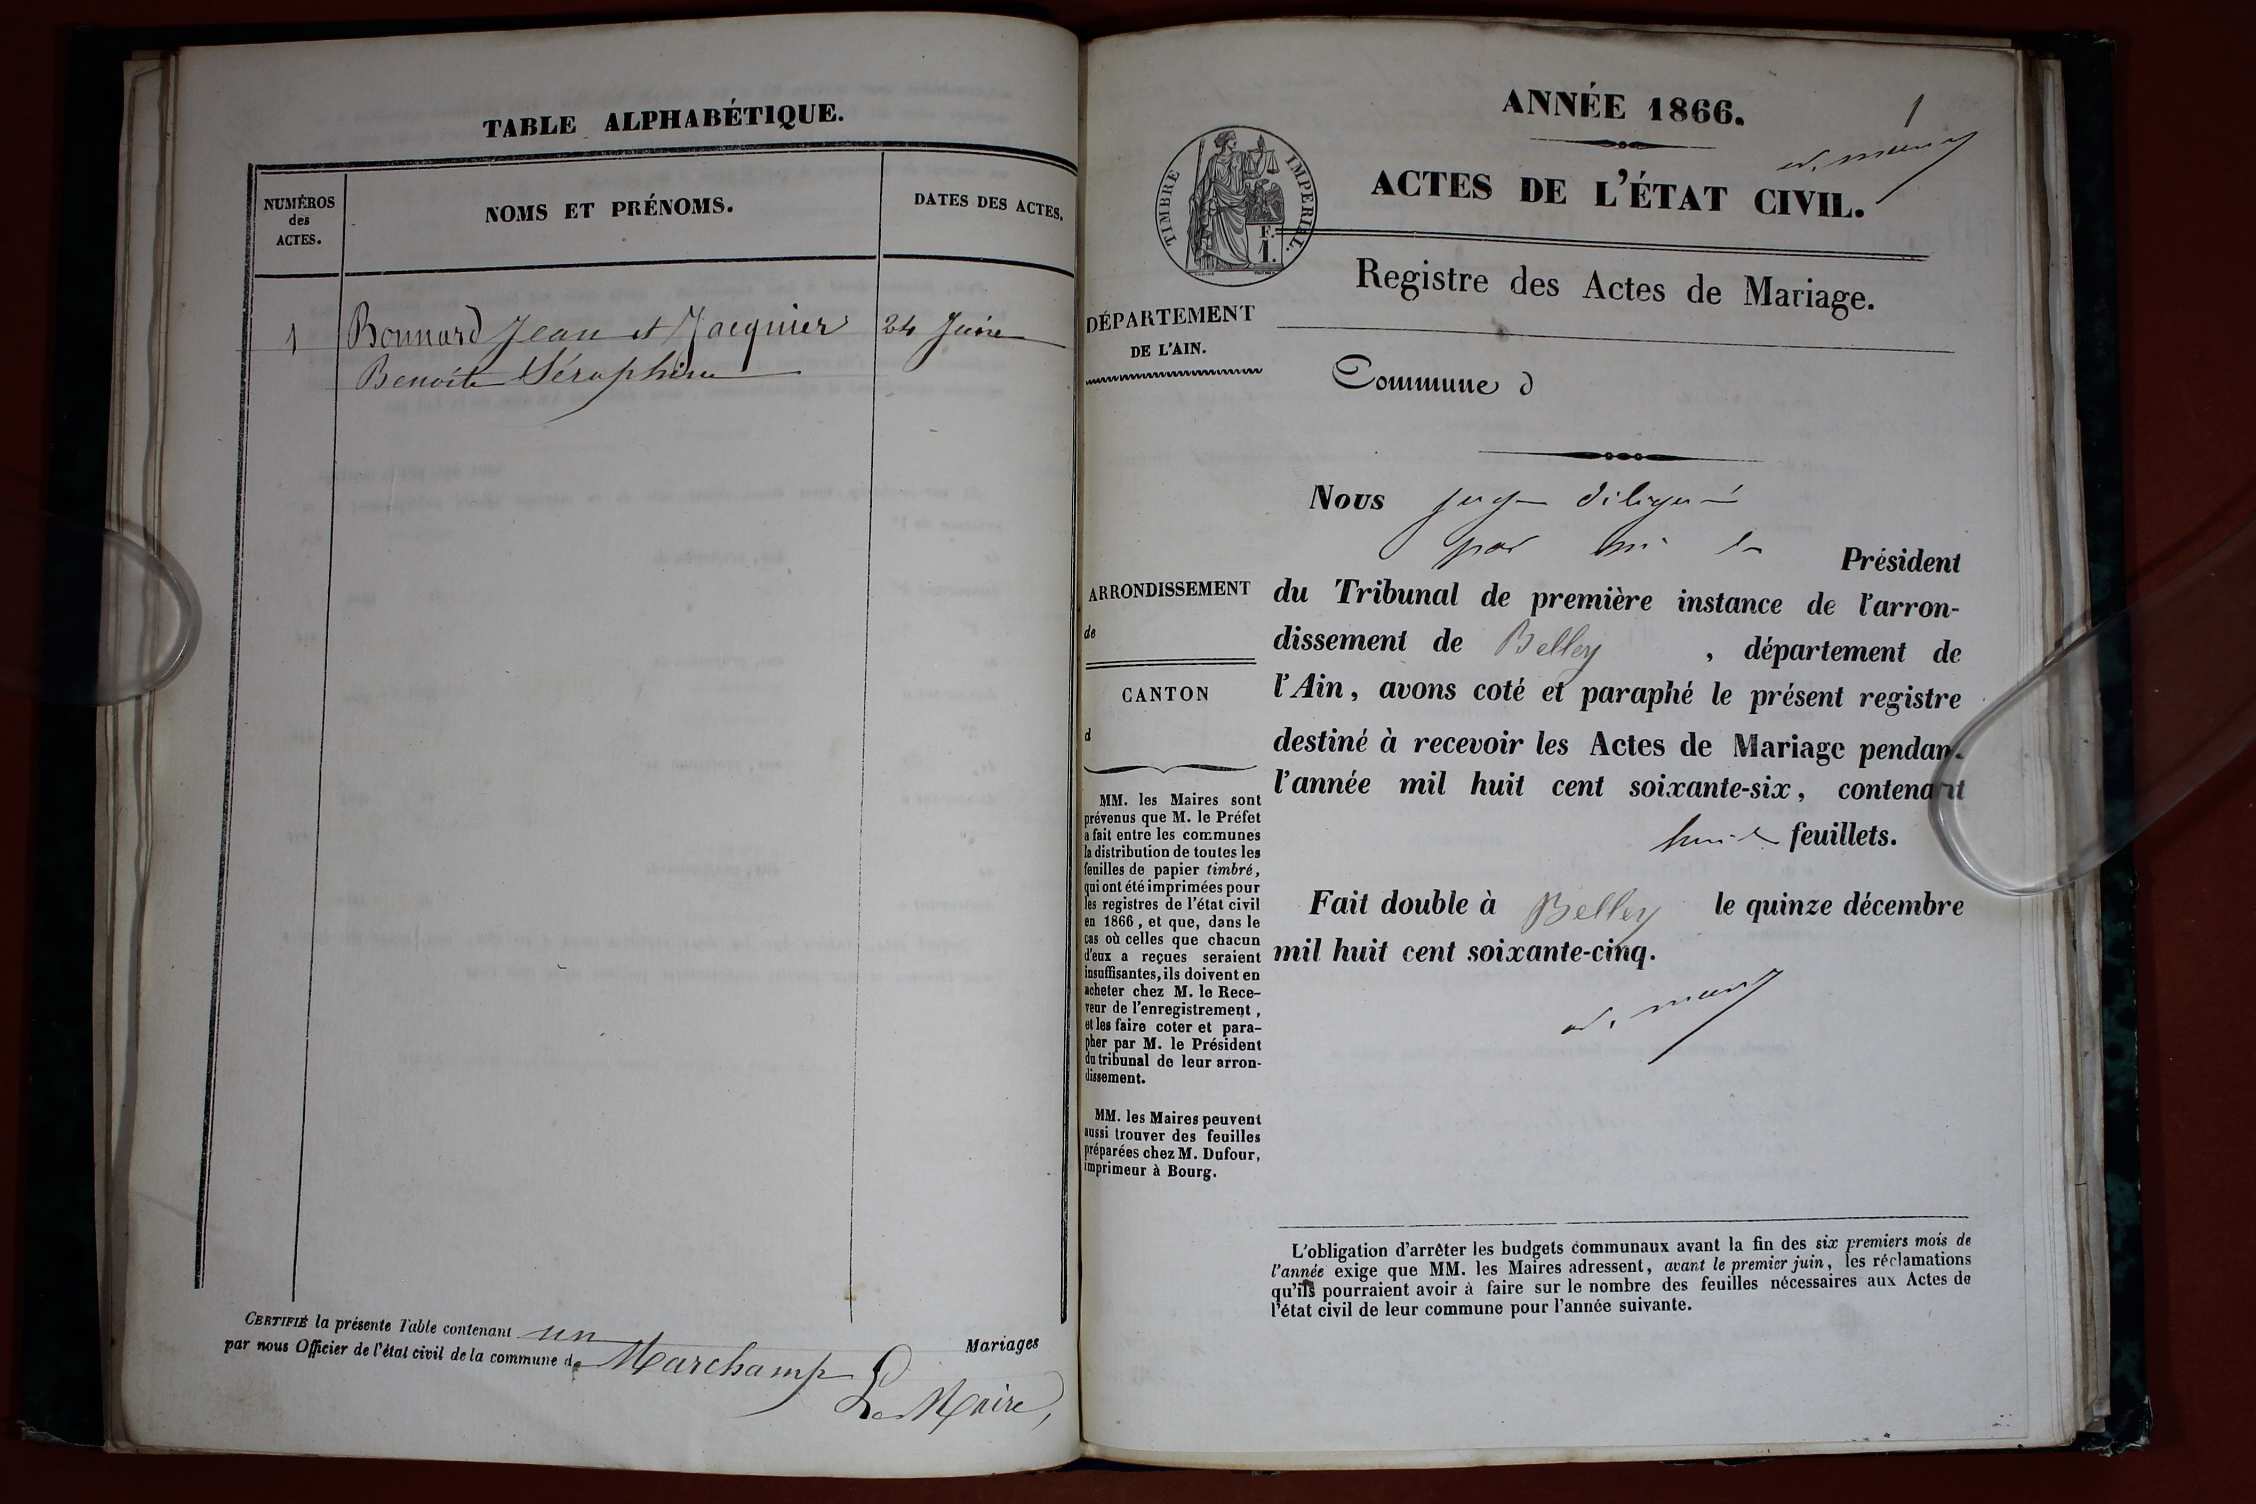 TABLE ALPHABÉTIQUE.
NUMÉROS
des
ACTES.
NOMS ET PRÉNOMS.
DATES DES ACTES.
1 Bonnard Jean et Jacquier 24 Juin
Benoite Séraphine
CERTIFIÉ la présente Table contenant un Mariages
par nous Officier de l'état civil de la commune de Marchamp
Le Maire,
1
ANNÉE 1866.
ACTES DE L'ÉTAT CIVIL.
TIMBRE IMPERIAL.
F.
1.
Registre des Actes de Mariage.
DÉPARTEMENT
DE L'AIN.
Commune d
Nous juge délégué
par le Président
ARRONDISSEMENT
de
CANTON
d
du Tribunal de première instance de l'arron-
dissement de Belley , département de
l'Ain, avons coté et paraphé le présent registre
destiné à recevoir les Actes de Mariage pendan
l'année mil huit cent soixante-six, contenant
huit feuillets.
Fait double à Belley le quinze décembre
mil huit cent soixante-cinq.
MM. les Maires sont
prévenus que M. le Préfet
a fait entre les communes
la distribution de toutes les
feuilles de papier timbré,
qui ont été imprimées pour
les registres de l'état civil
en 1866, et que, dans le
cas où celles que chacun
d'eux a reçues seraient
insuffisantes, ils doivent en
acheter chez M. le Rece-
veur de l'enregistrement,
et les faire coter et para-
pher par M. le Président
du tribunal de leur arron-
dissement.
MM. les Maires peuvent
aussi trouver des feuilles
préparées chez M. Dufour,
imprimeur à Bourg.
L'obligation d'arrêter les budgets communaux avant la fin des six premiers mois de
l'année exige que MM. les Maires adressent, avant le premier juin, les réclamations
qu'ils pourraient avoir à faire sur le nombre des feuilles nécessaires aux Actes de
l'état civil de leur commune pour l'année suivante.